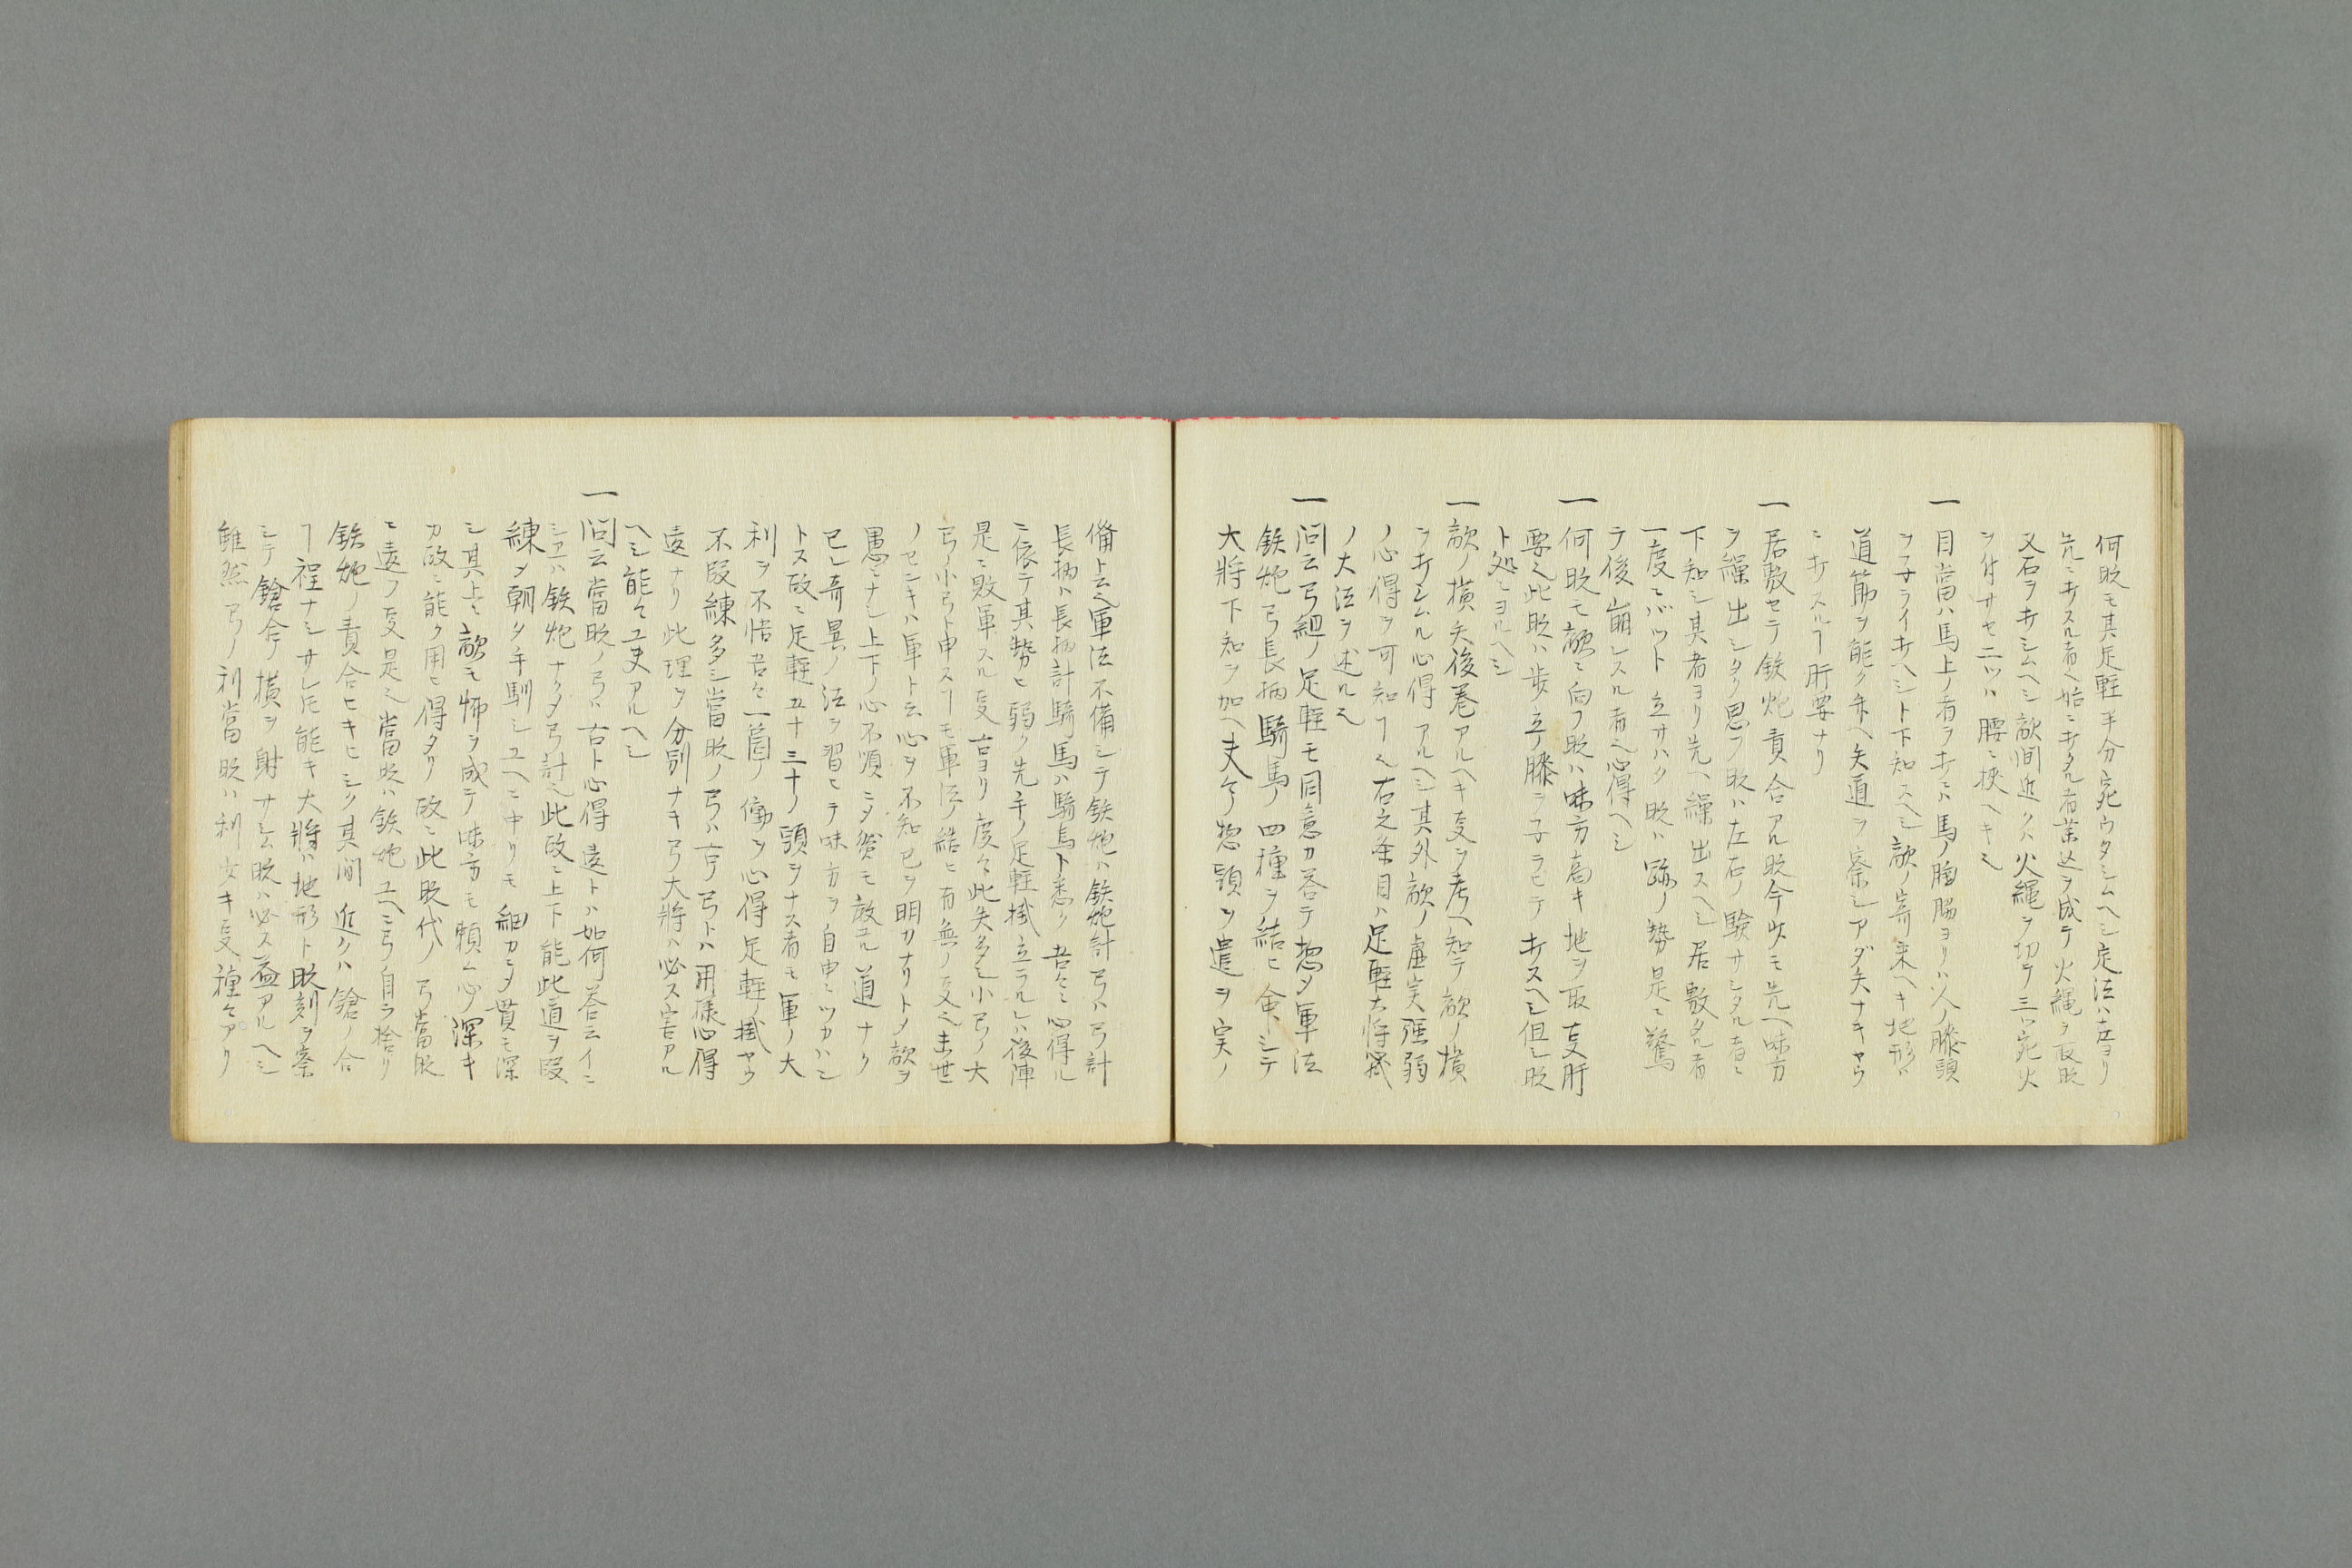 何時モ其足軽手分宛ウタシムヘシ定法ハ左ヨリ
先ニ打スル者ヘ始ニ打タル者薬込ヲ成テ火縄ヲ取時
又右ヲ打シムヘシ敵間近クハ火縄ヲ切テ三ツ宛火
ヲ付サセ二ツハ腰ニ挾ヘキ也
一 目當ハ馬上ノ者ヲ打ニハ馬ノ胸腸ヨリハ人ノ膝頭
ヲ子ライ打ヘシト下知スヘシ敵ノ寄来ヘキ地形ハ
道節ヲ能ク弁ヘ矢道ヲ察シアダ矢ナキヤウ
ニ打スルヿ肝要ナリ
一 居敷セテ鉄炮責合アル時今少モ先ヘ味方
ヲ繰出シタク思フ時ハ左右ノ験サシタル者ニ
下知シ其者ヨリ先ヘ繰出スヘシ居敷タル者
一度ニバツト立サハク時ハ跡ノ勢是ニ驚
テ後崩レスル者也心得ヘシ
一 何時モ敵ニ向フ時ハ味方高キ地ヲ取亊肝
要也此時ハ歩立ノ膝ヲ子ラヒテ打スヘシ但シ時
ト処ニヨルヘシ
一 敵ノ横矢後巻アルヘキ亊ヲ考ヘ知テ敵ノ横
ヲ打シムル心得アルヘシ其外敵ノ虚実強弱
ノ心得ヲ可知ヿ也右之条目ハ足軽大将武
ノ大法ヲ述ル也
一 問云弓組ノ足軽モ同意カ答テ惣〆軍法
鉄炮弓長柄騎馬ノ四種ヲ結ヒ余シテ
大将下知ヲ加ヘ夫々惣頭ヲ遣ヲ実ノ
備ト云也軍法不備シテ鉄炮ハ鉄炮計弓ハ弓計
長柄ハ長柄計騎馬ハ騎馬ト悉ク吾々ニ心得ル
ニ依テ其勢ヒ弱ク先手ノ足軽掛立ラルレハ後陣
是ニ敗軍スル亊古ヨリ度々此失多シ小弓ノ大
弓ノ小弓ト申スヿモ軍法ノ結ヒ有無ノ亊也末世
ノセニキハ軍ト云心ヲ不知已ヲ明カナリト〆敵ヲ
愚ミナシ上下ノ心不順ニ〆賞モ敵エル道ナク
已レ奇異ノ法ヲ習ヒテ味方ヲ自由ニツカハン
トス故ニ足軽五十三十ノ頭ヲナス者モ軍ノ大
利ヲ不悟吾々一箇ノ働ヲ心得足軽ノ掛ヤウ
不鍛練多シ當時ノ弓ハ古ノ弓トハ用様心得
違ナリ此理ヲ分別ナキ弓大将ハ必ス害アル
ヘシ能々工夫アルヘシ
一 問云當時ノ弓ハ古ト心得違トハ如何答云イニ
シヘハ鉄炮ナク〆弓計也此故ニ上下能此道ヲ鍛
練〆朝夕手馴シユヘニ中リモ細カニ〆貫モ深
シ其上ニ敵モ怖ヲ成テ味方モ頼ム心深キ
カ故ニ能ク用ヒ得タリ故ニ此時代ノ弓當時
ニ違フ亊是也當時ハ鉄炮ユヘニ弓自ラ捨リ
鉄炮ノ責合ヒキヒシク其間近クハ鎗ノ合
ヿ程ナシサレ𪜈能キ大将ハ地形ト時刻ヲ察
シテ鎗合ノ横ヲ射サシム時ハ必ス益アルヘシ
雖然弓ノ利當時ハ利少キ亊種々アリ